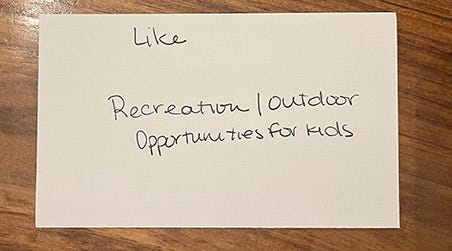 Like
Recreation / outdoor
Opportunities for kids